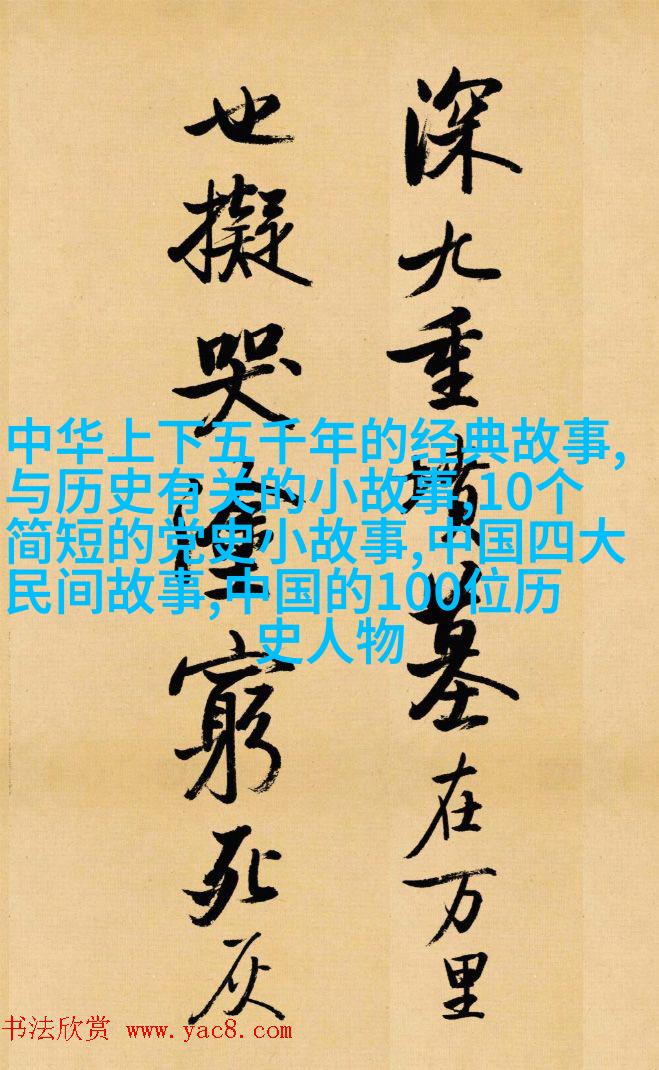 深九重墳墓在万里
也擬哭塗窮死灰
中华上下五千年的经典故事,
与历史有关的小故事,10个
简短的党史小故事,中国四大
民间故事,中国的100位历
史人物
书法欣赏 www.yac8.com